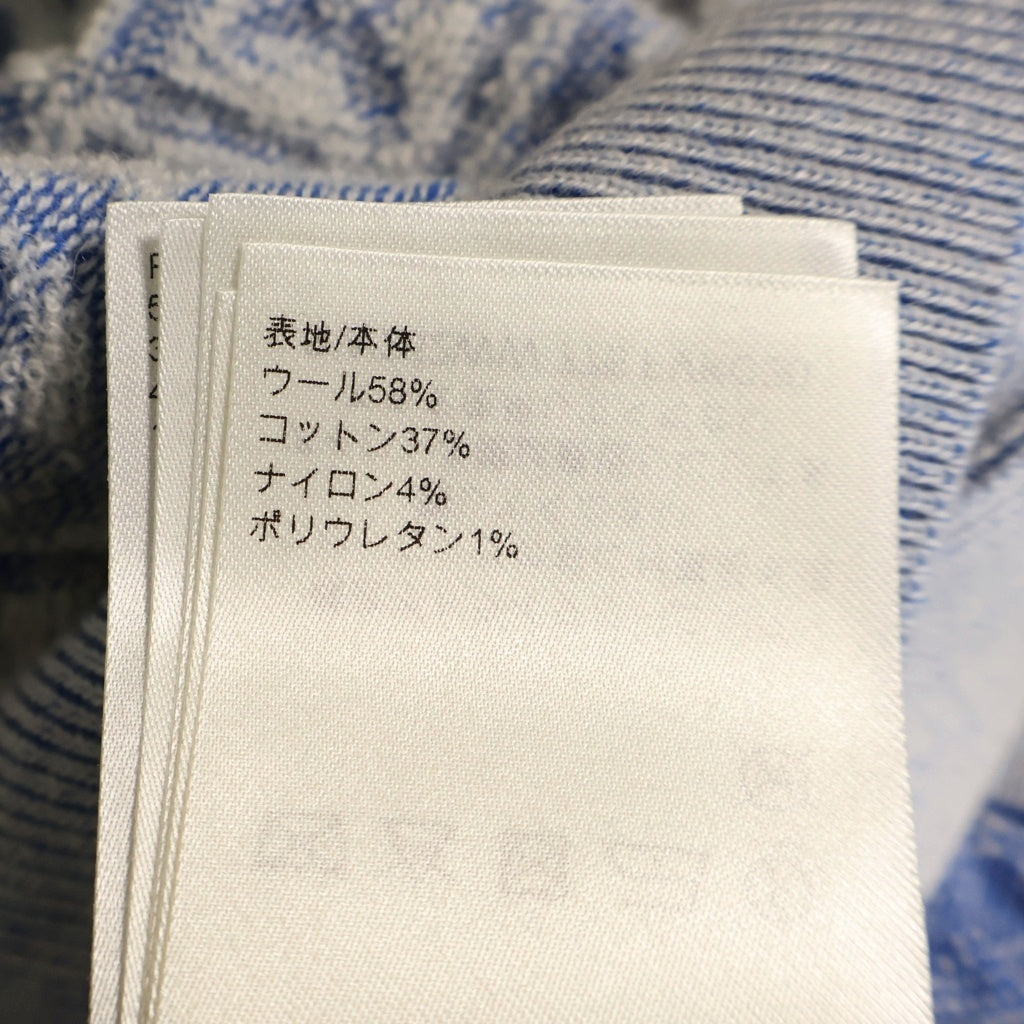 表地/本体
ウール58%
コットン37%
ナイロン4%
ポリウレタン1%